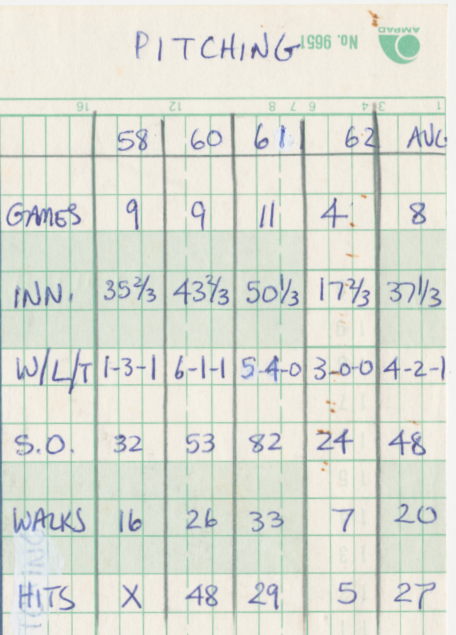 PITCHING
No. 9651
AMPAD
16 12 8 7 6 4 3 1
58 60 61 62 AVG
GAMES 9 9 11 4 8
INN. 35 2/3 43 2/3 50 1/3 17 2/3 37 1/3
W/L/T 1-3-1 6-1-1 5-4-0 3-0-0 4-2-1
S.O. 32 53 82 24 48
WALKS 16 26 33 7 20
HITS X 48 29 5 27